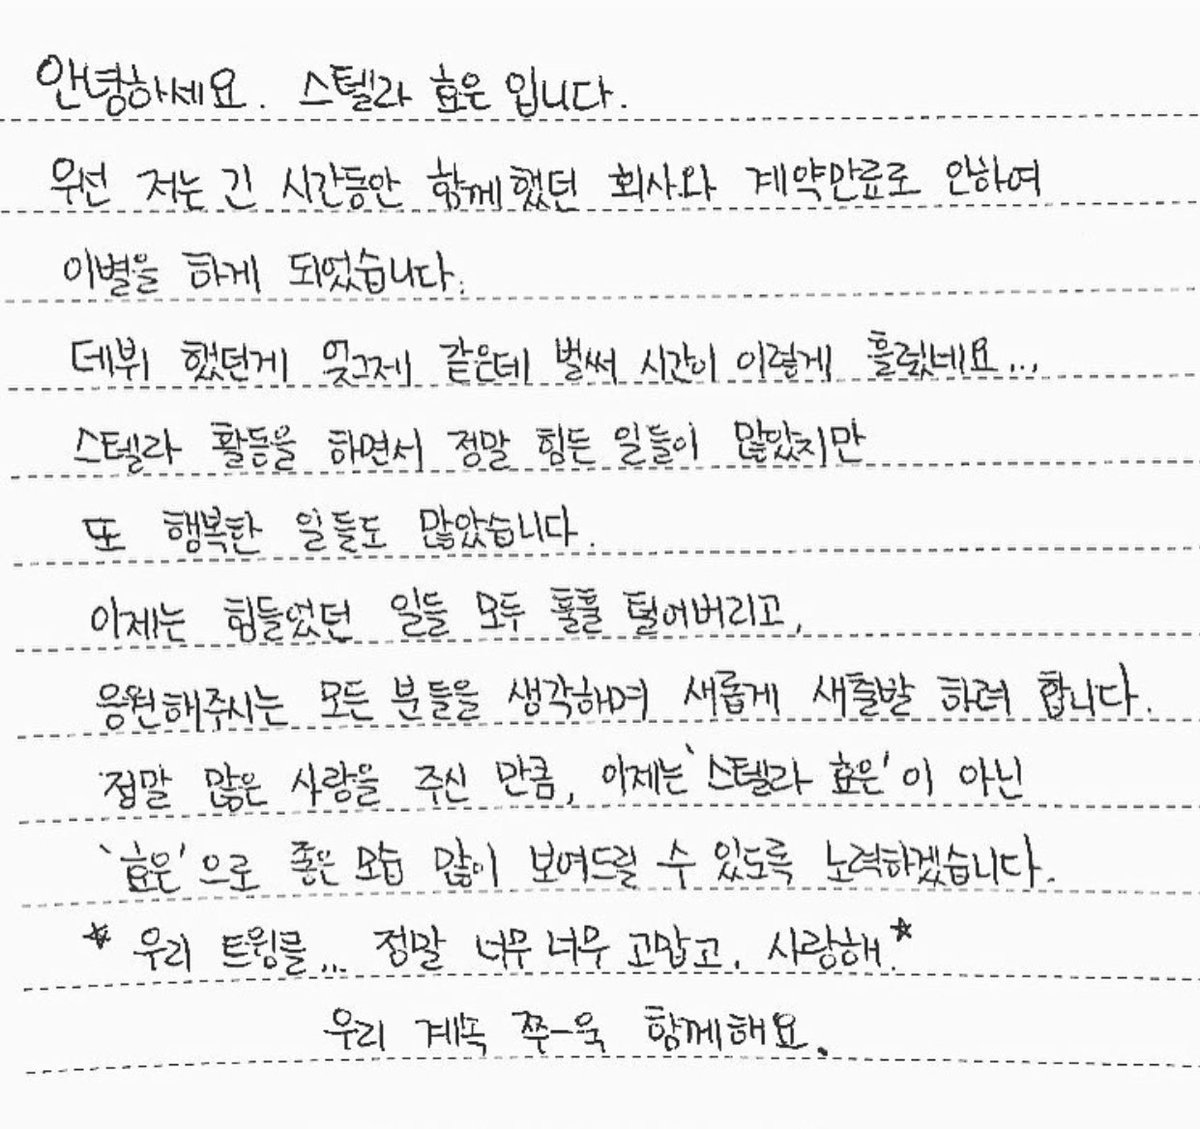 안녕하세요. 스텔라 효은 입니다.
우선 저는 긴 시간동안 함께했던 회사와 계약만료로 인하여
이별을 하게 되었습니다.
데뷔 했던게 엊그제 같은데 벌써 시간이 이렇게 흘렀네요...
스텔라 활동을 하면서 정말 힘든 일들이 많았지만
또 행복한 일들도 많았습니다.
이제는 힘들었던 일들 모두 훌훌 털어버리고,
응원해주시는 모든 분들을 생각하며 새롭게 새출발 하려 합니다.
정말 많은 사랑을 주신 만큼, 이제는 '스텔라 효은' 이 아닌
'효은' 으로 좋은 모습 많이 보여드릴 수 있도록 노력하겠습니다.
* 우리 트윙클... 정말 너무 너무 고맙고. 사랑해.*
우리 계속 쭈-욱 함께해요.